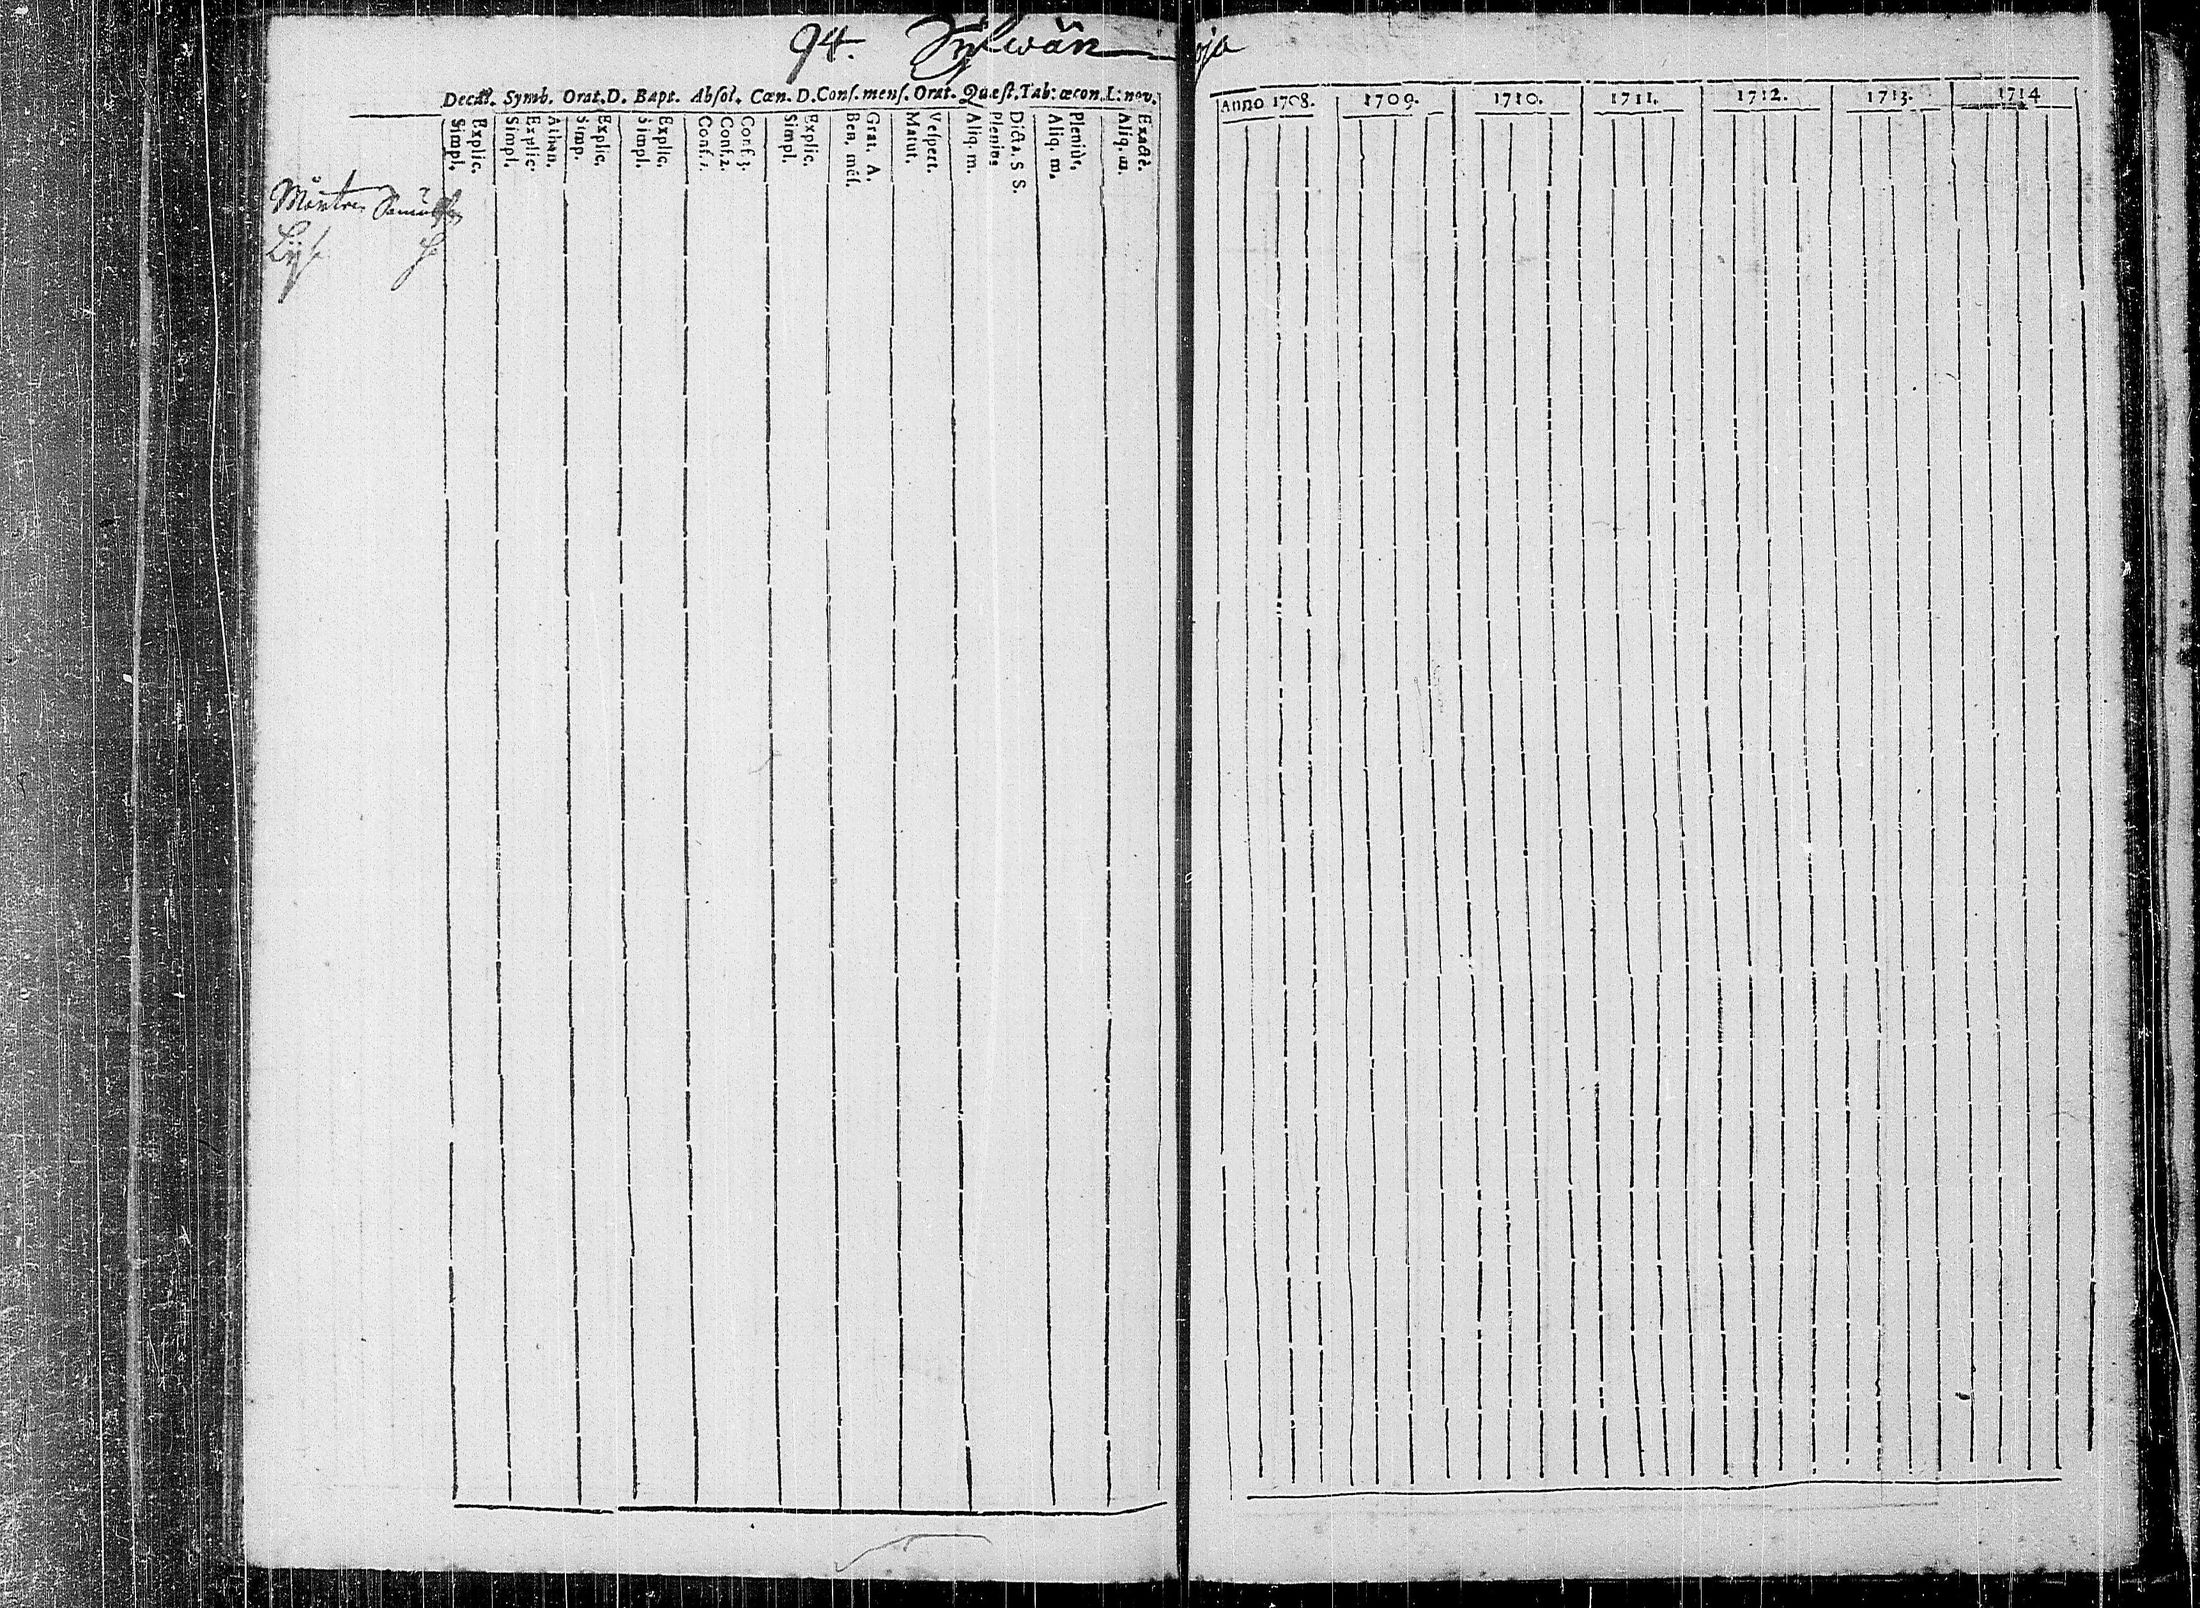 94. Sylwän oja
Decal. Symb. Orat. D. Bapt. Absol. Cœn. D. Conf. mens. Orat. Quæst. Tab: œcon. L: nov.
Simpl. Explic. Simpl. Explic. Athan. Simp. Explic. Simpl. Explic. Conf. 1. Conf. 2. Conf. 3. Simpl. Explic. Ben. mēs. Grat. A. Matut. Vespert. Aliq. m. Plenius Dicta. S S. Aliq. m. Pleniùs. Aliq. m. Exactè.
Anno 1708. 1709. 1710. 1711. 1712. 1713. 1714
Mårten